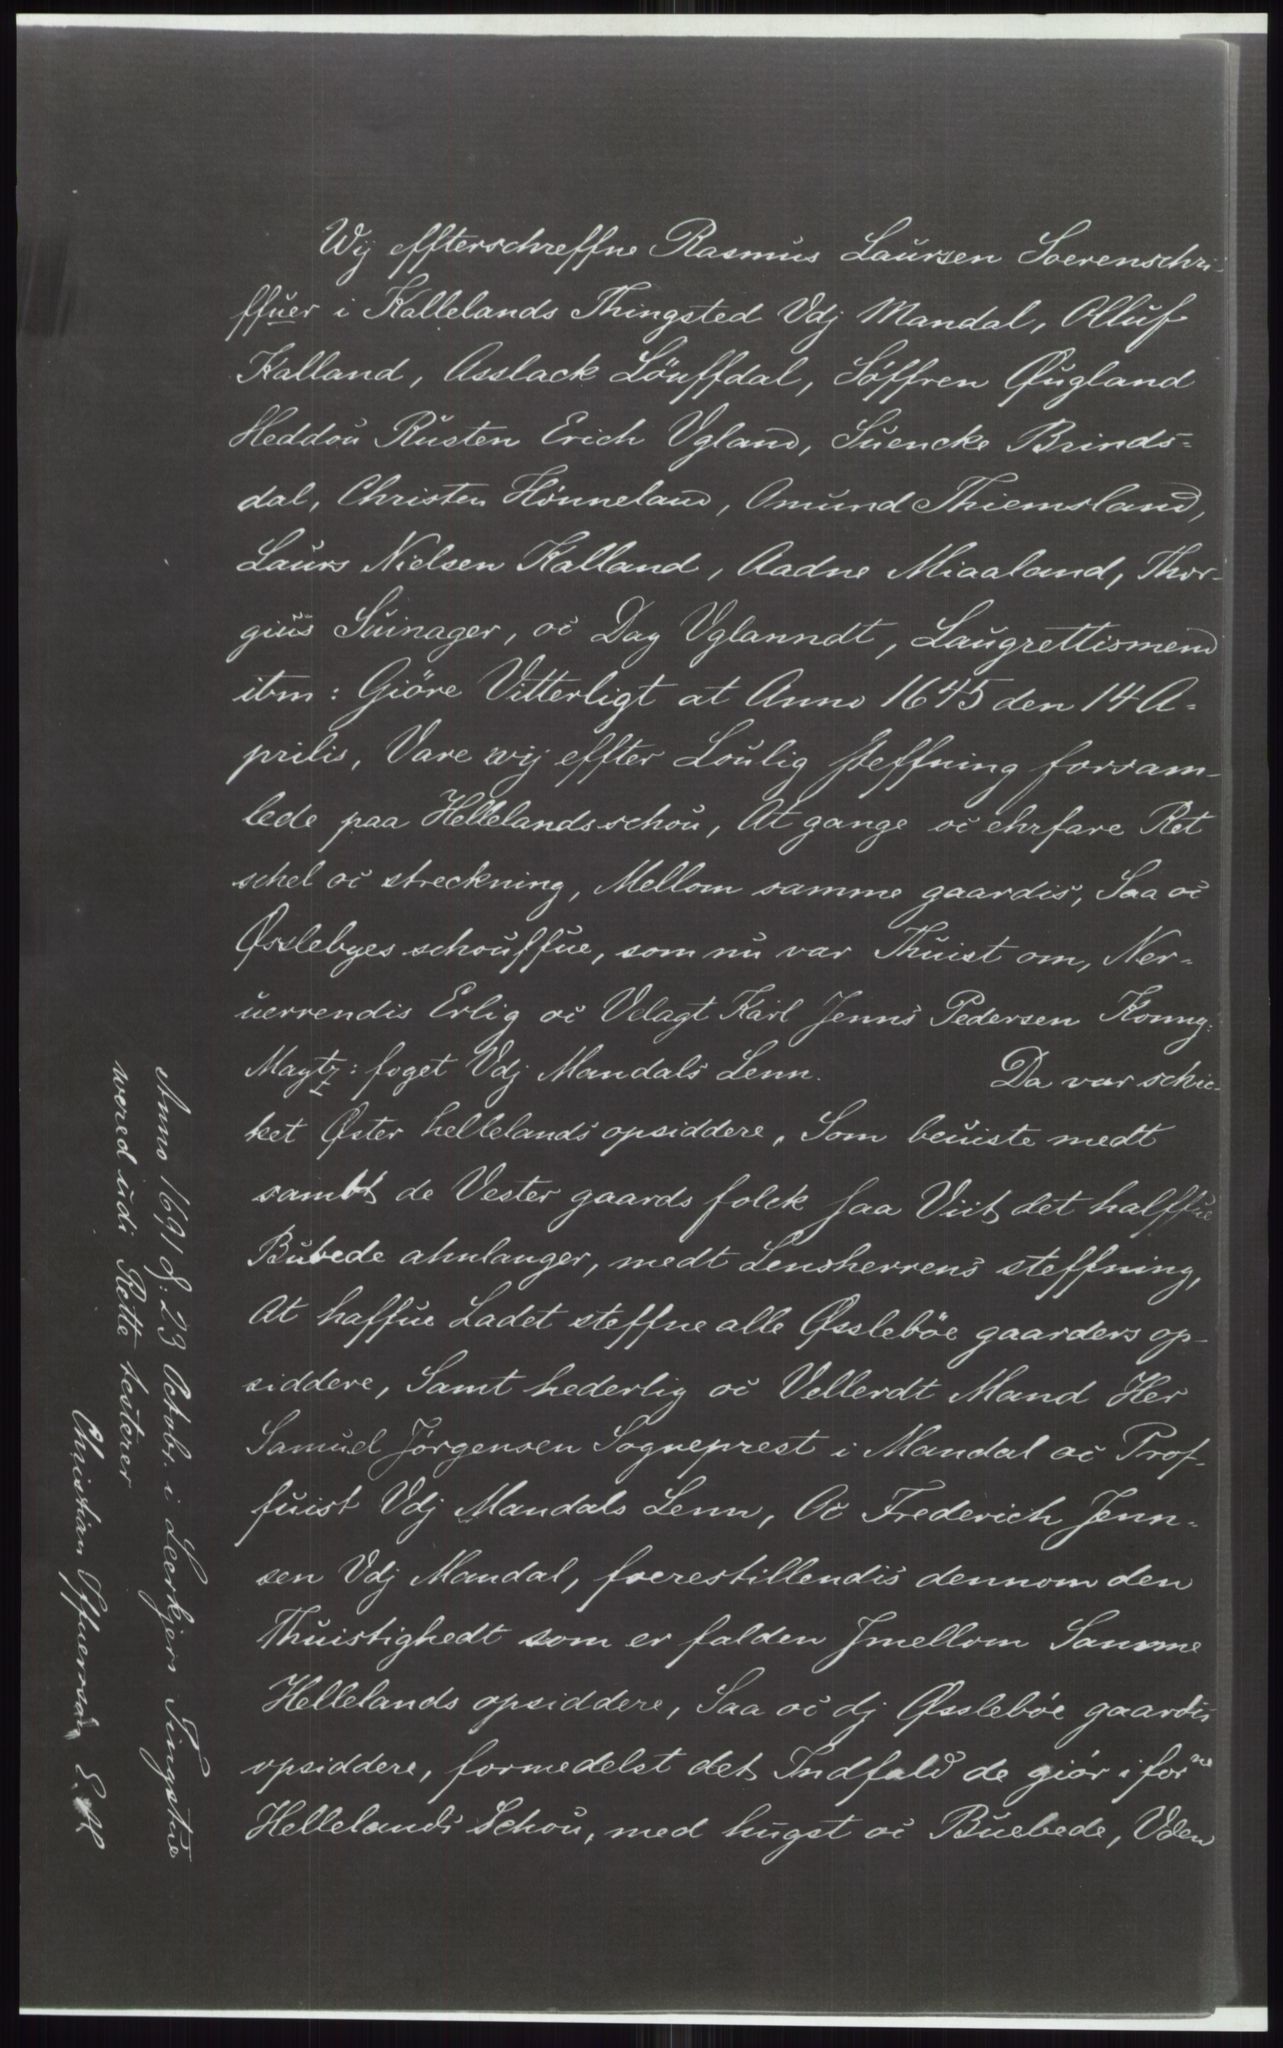 Wij effterschreffne Rasmus Laursen Soerenschri-
ffuer i Kallelands Thingsted Vdj Mandal, Olluf
Kalland, Asslack Löuffdal, Söffren Øugland
Heddou Rusten Erich Vgland, Suencke Brinds-
dal, Christen Hönneland, Omund Thiemsland,
Laurs Nielsen Kalland, Aadne Miaaland, Thor-
giuls Suinager, oc Dag Vglanndt, Laugrettismend
ibm: Giöre Vitterligt at Anno 1645 den 14 A-
prilis, Vare wij effter Loulig steffning forsam-
lede paa Hellelandsschou, At gange oc ehrfare Ret
schel oc streckning, Mellom samme gaardis, Saa oc
Øsslebyes schouffue, som nu var Thuist om, Ner-
uerrendis Erlig oc Velagt Karl Jenns Pedersen Konng:
Maytz: foget Vdj Mandals Lenn. Da var schic-
ket Øster hellelands opsiddere, Som beuiste medt
sambt de Vester gaards folck saa Viit det halffue
Bubede ahnlanger, medt Lensherrens steffning,
At haffue Ladet steffne alle Øssleböe gaarders op-
siddere, Samt hederlig oc Vellerdt Mand Her
Samuel Jørgensen Sogneprest i Mandal oc Prof-
fuist Vdj Mandals Lenn, Oc Frederich Jenn-
sen Vdj Mandal, foerestillendis dennom den
Thuistighedt som er falden Jmellom Samme
Hellelands opsiddere, Saa oc dj Øssleböe gaardis
opsiddere, formedelst det Indfald de giör i forne
Hellelands Schou, med hugst oc Buebede, Vden
Anno 1691 d: 23 Octobr. i Leerkjers Tingstue
wered udi Rette testerer
Christian